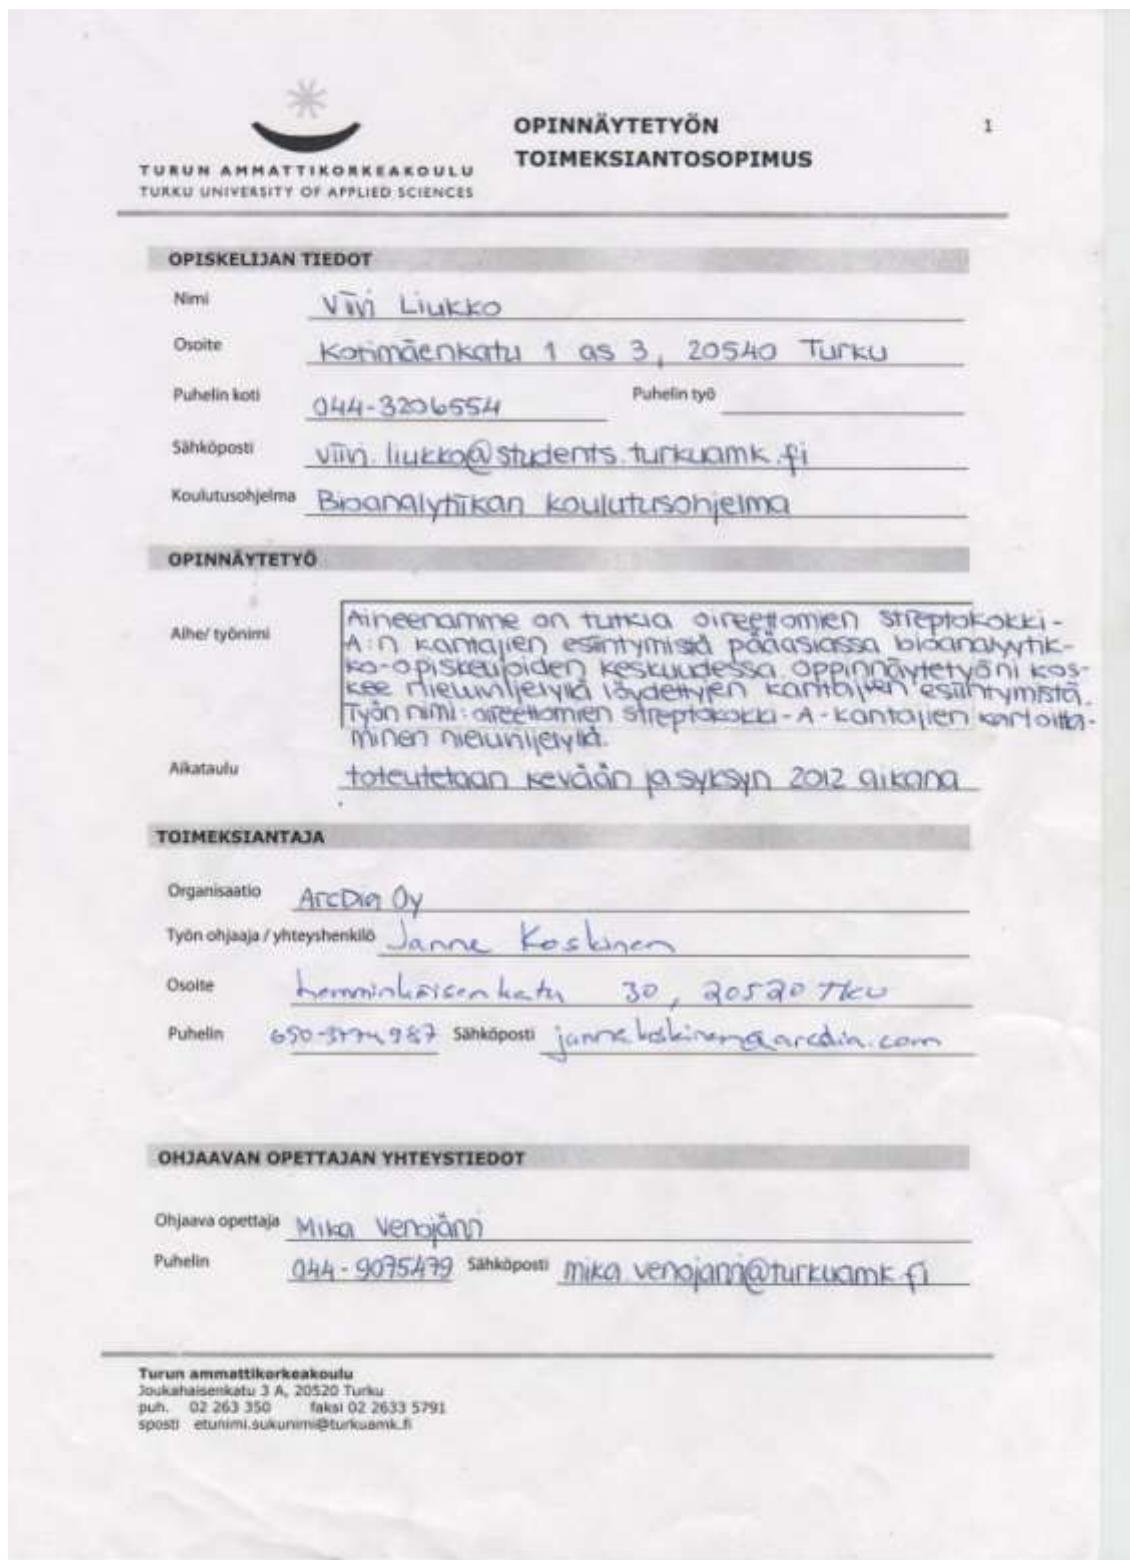 OPINNÄYTETYÖN
TOIMEKSIANTOSOPIMUS
1
TURUN AMMATTIKORKEAKOULU
TURKU UNIVERSITY OF APPLIED SCIENCES
OPISKELIJAN TIEDOT
Nimi Viivi Liukko
Osoite Kotimäenkatu 1 as 3, 20540 Turku
Puhelin koti 044-3206554 Puhelin työ
Sähköposti viivi.liukko@students.turkuamk.fi
Koulutusohjelma Bioanalytiikan koulutusohjelma
OPINNÄYTETYÖ
Aihe/ työnimi
Aineenamme on tutkia oireettomien streptokokki-
A:n kantajien esiintymistä pääasiassa bioanalyytik-
ko-opiskelijoiden keskuudessa. Oppinnäytetyöni kos-
kee nieluviljelyllä löydettyjen kantajien esiintymistä.
Työn nimi: oireettomien streptokokki-A-kantajien kartoitta-
minen nieluviljelyllä.
Aikataulu toteutetaan kevään ja syksyn 2012 aikana
TOIMEKSIANTAJA
Organisaatio ArcDia Oy
Työn ohjaaja / yhteyshenkilö Janne Koskinen
Osoite 30, 20520 Tku
Puhelin Sähköposti janne.koskinen@arcdia.com
OHJAAVAN OPETTAJAN YHTEYSTIEDOT
Ohjaava opettaja Mika Venojärvi
Puhelin 044-9075479 Sähköposti mika.venojarvi@turkuamk.fi
Turun ammattikorkeakoulu
Joukahaisenkatu 3 A, 20520 Turku
puh. 02 263 350 faksi 02 2633 5791
sposti etunimi.sukunimi@turkuamk.fi